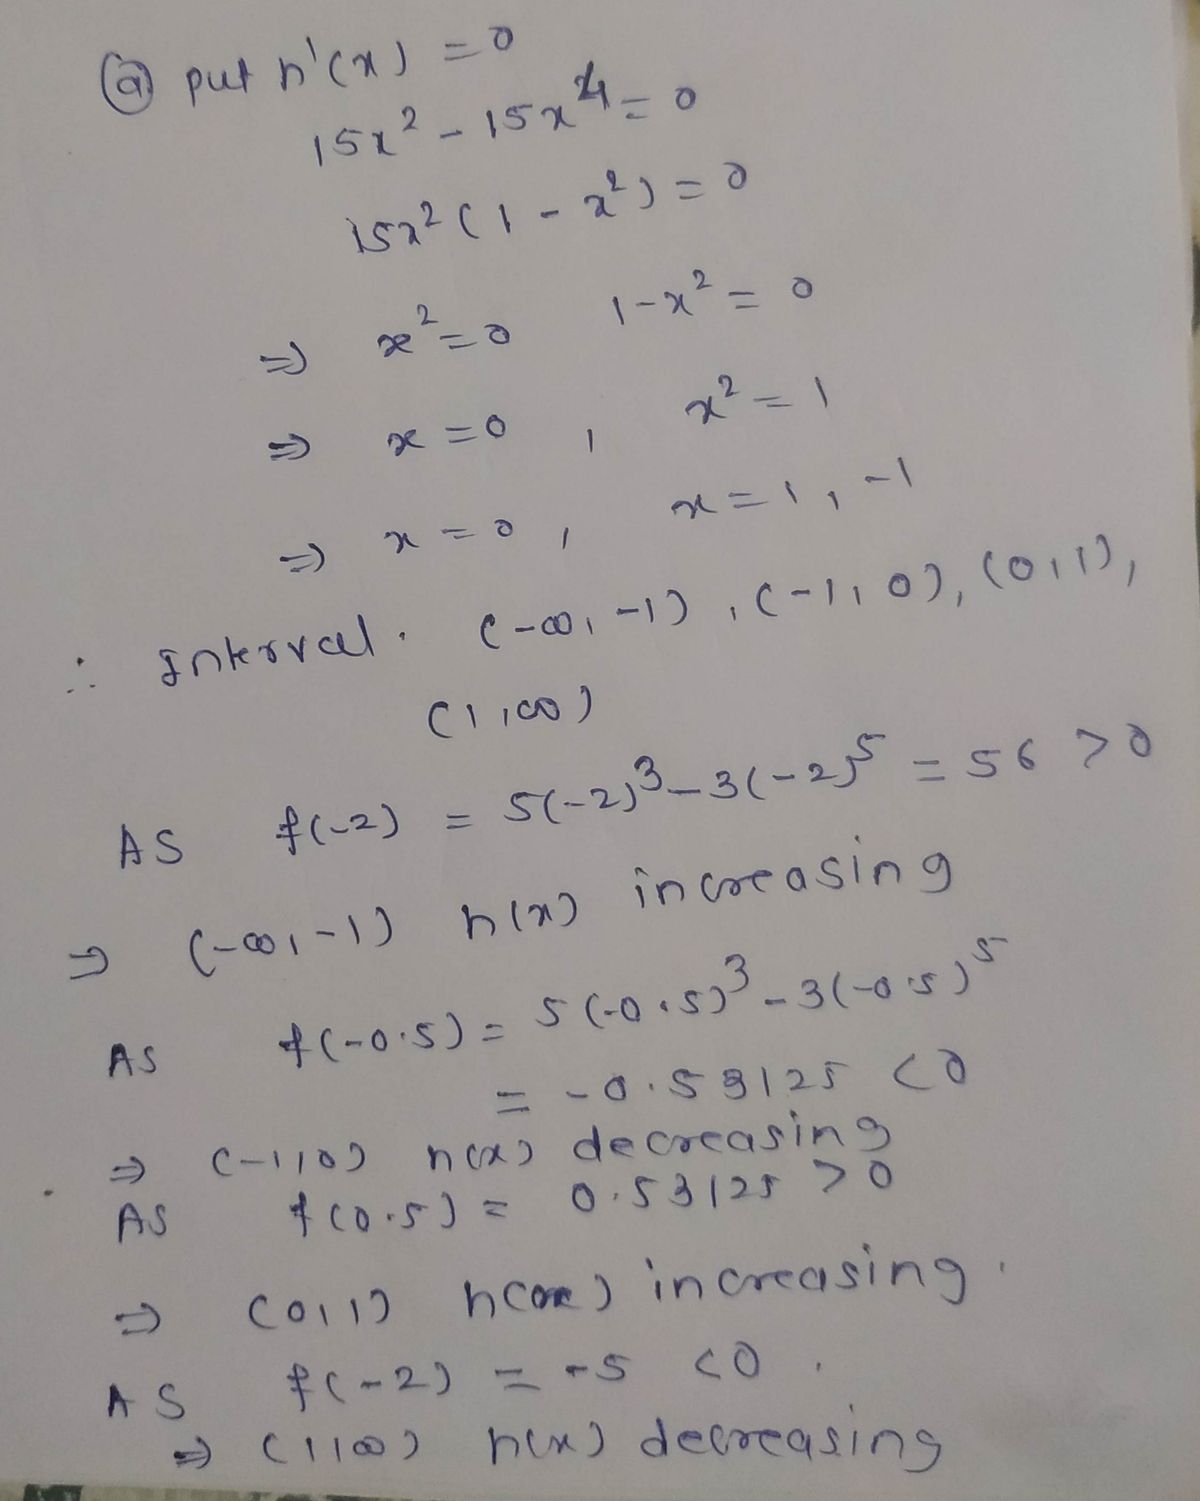 (a) put h'(x) = 0
15x² - 15x⁴ = 0
15x² (1 - x²) = 0
⇒ x² = 0 1 - x² = 0
⇒ x = 0 , x² = 1
⇒ x = 0 , x = 1, -1
∴ Interval. (-∞, -1), (-1, 0), (0, 1),
(1, ∞)
AS f(-2) = 5(-2)³ - 3(-2)⁵ = 56 > 0
⇒ (-∞, -1) h(x) increasing
AS f(-0.5) = 5(-0.5)³ - 3(-0.5)⁵
= -0.53125 < 0
⇒ (-1, 0) h(x) decreasing
AS f(0.5) = 0.53125 > 0
⇒ (0, 1) h(x) increasing.
AS f(-2) = -5 < 0.
⇒ (1, ∞) h(x) decreasing